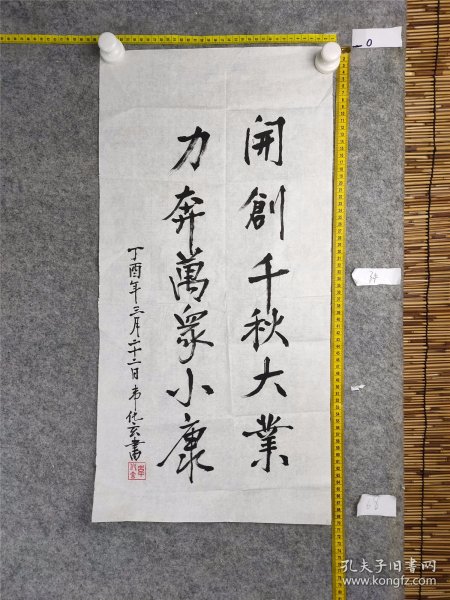 開創千秋大業
力奔萬眾小康
丁酉年三月二十二日韦化玄書
0
34
68
孔夫子旧书网
www.kongfz.com